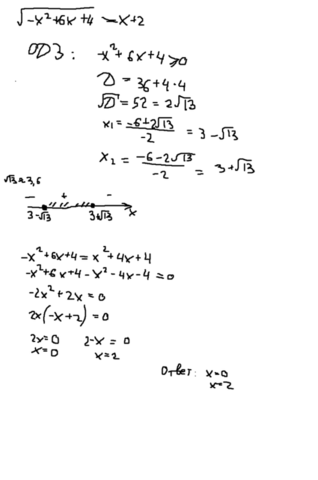 √-x²+6x+4 - x+2
ОДЗ: -x²+6x+4⩾0
D = 36+4·4
√D = 52 = 2√13
x₁ = (-6+2√13)/-2 = 3-√13
x₂ = (-6-2√13)/-2 = 3+√13
√13≈3,6
- + -
3-√13 3+√13 x
-x²+6x+4 = x²+4x+4
-x²+6x+4-x²-4x-4=0
-2x²+2x=0
2x(-x+2)=0
2x=0 2-x=0
x=0 x=2
Ответ: x=0
x=2